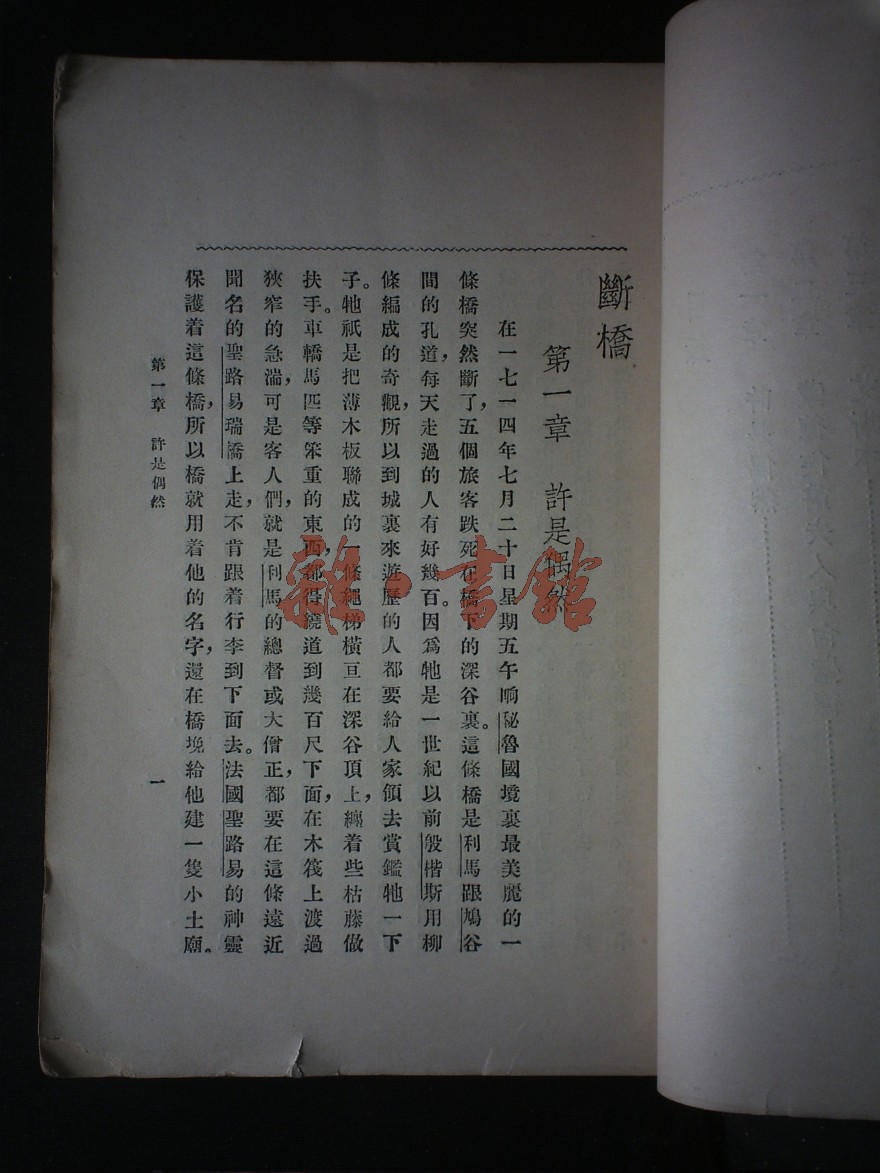 斷橋
第一章　許是偶然
在一七一四年七月二十日星期五午晌秘魯國境裏最美麗的一
條橋突然斷了，五個旅客跌死在橋下的深谷裏。這條橋是利馬跟鳩谷
間的孔道，每天走過的人有好幾百。因爲牠是一世紀以前般楷斯用柳
條編成的奇觀，所以到城裏來遊歷的人都要給人家領去賞鑑牠一下
子。牠祇是把薄木板聯成的一條繩梯橫亘在深谷頂上，纏着些枯藤做
扶手。車轎馬匹等笨重的東西，都得繞道到幾百尺下面，在木筏上渡過
狹窄的急湍，可是客人們，就是利馬的總督或大僧正，都要在這條遠近
聞名的聖路易瑞橋上走，不肯跟着行李到下面去。法國聖路易的神靈
保護着這條橋，所以橋就用着他的名字，還在橋堍給他建一隻小土廟。
第一章　許是偶然
一
雜·書館